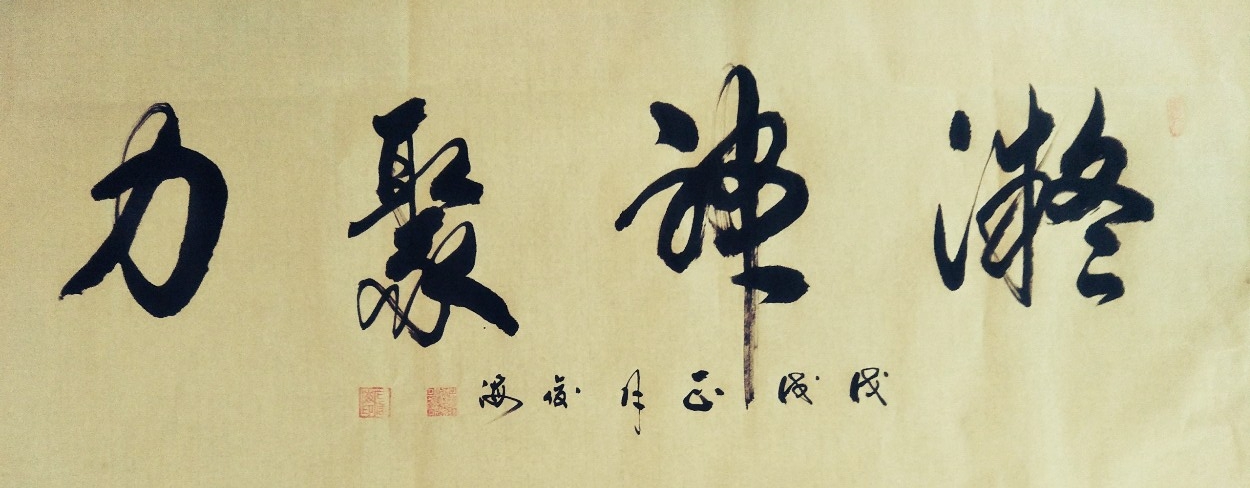 凝神聚力
戊戌正月俊海